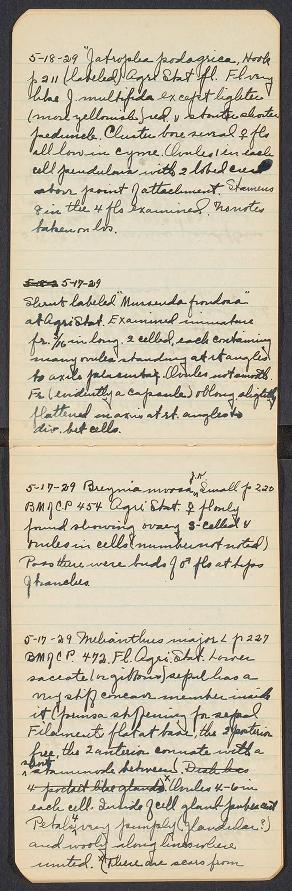 5-18-29 "Jatropha podagrica, Hook
p 211 (labeled) Agri Stat. fl. Fl very
like J. multifida except lighter
(more yellowish) red, & stouter shorter
peduncle. Cluster bore several ♀ fls
all low in cyme. Ovules 1 in each
cell pendulous with 2 lobed
above point of attachment. Stamens
8 in the 4 fls examined. No notes
taken on lvs.
5-17-29
Shrub labeled "Mussenda frondosa"
at Agri Stat. Examined immature
fr. 7/16 in long. 2 celled, each containing
many ovules standing at rt angles
to axile placentae. Ovules not smooth
Fr (evidently a capsule) oblong slightly
flattened in axis at rt. angles to
div. bet cells.
5-17-29 Breynia nivosa, Small p 220
BM of CP 454 Agri Stat. ♀ fl only
found showing ovary 3-celled &
ovules in cells (number not noted)
Poss there were buds of ♂ fls at tips
of branches.
5-17-29 Melianthus major L p 227
BM of CP. 472. Fl. Agri. Stat. Lower
saccate (or gibbous) sepal has a
very stiff concave member inside
it (      stiffening) for sepal
Filaments flat at base, the 2 posterior
free, the 2 anterior connate with a
short
staminode between. Disk has
4 pocket like glands. Ovules 4-6 in
each cell. Inside of cell gland pubescent
Petals 4, very pimply (glandular?)
and wooly along lines where
united. (There are scars from